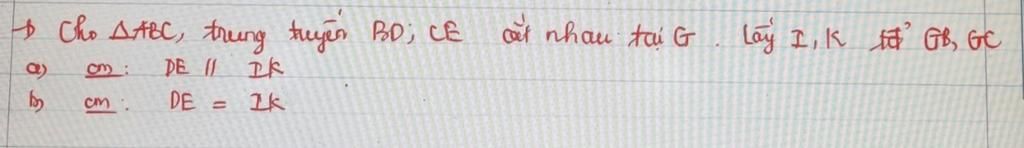 → Cho ΔABC, trung tuyến BD; CE cắt nhau tại G. Lấy I, K tđ² GB, GC
a) cm: DE // IK
b) cm: DE = IK